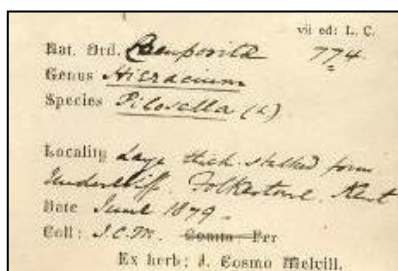 vii ed: L. C.
Nat. Ord. Compositæ 774.
Genus Hieracium
Species Pilosella (L)
Locality Large thick stalked form
Undercliff. Folkestone. Kent
Date June 1879.
Coll: J.C.M. Comm Per
Ex herb: J. Cosmo Melvill.